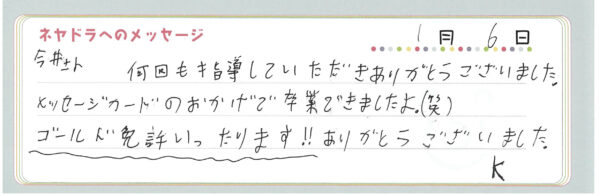 ネヤドラへのメッセージ 1月6日
今井さん 何回も指導していただきありがとうございました。
メッセージカードのおかげで卒業できましたよ。(笑)
ゴールド免許いったります!! ありがとうございました。
K